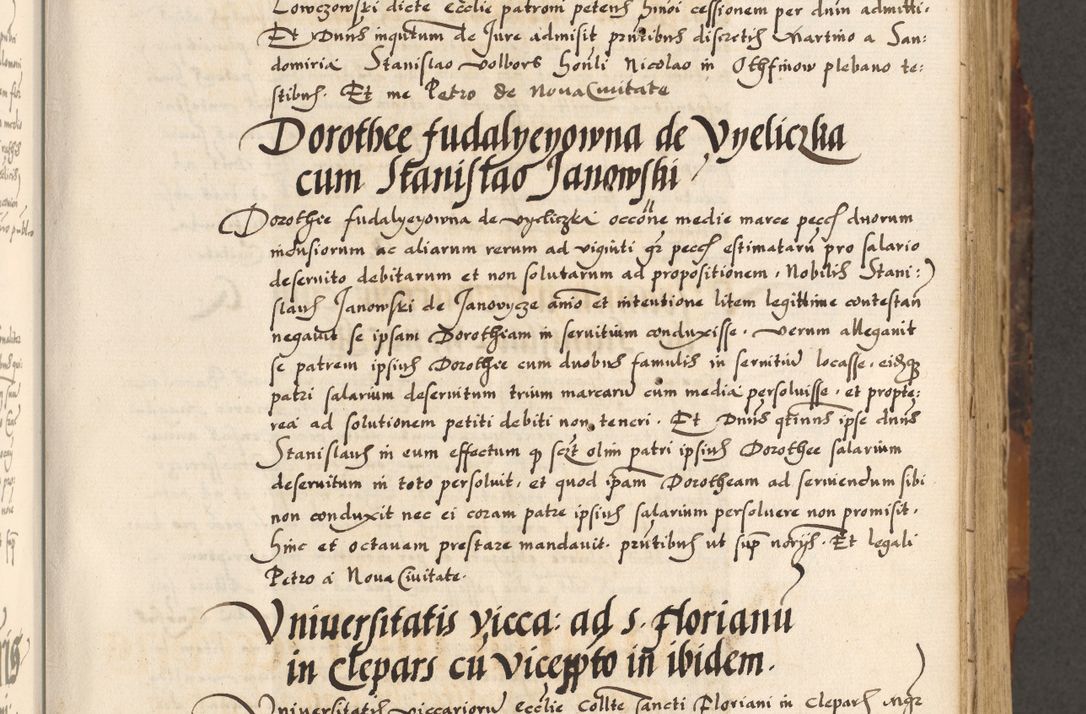 Lowczowski dicte ecclie patroni petens hmoi cessionem per dnm admitti.
Et Dnus inqutum de Jure admisit pntibus discretis Martino a San:
domiria Stanislao Volbors Honli Nicolao in Othfinow plebano te:
stibus. Et me Petro de Nova Civitate
Dorothee fudalyeyowna de Vyeliczka
cum Stanislao Janowski
Dorothee fudalyeyowna de vyeliczka occone medie marce pecc duorum
indusiorum ac aliarum rerum ad viginti gr pecc estimataru pro salario
deseruito debitarum et non solutarum ad propositionem, Nobilis Stani:
slaus Janowski de Janovycze animo et intentione litem legittime contestan
negauit se ipsam Dorotheam in seruitium conduxisse. Verum allegauit
se patrem ipsius Dorothee cum duobus famulis in seruitiu locasse, eidqz
patri salarium deseruitum trium marcaru cum media persoluisse, et propte:
rea ad solutionem petiti debiti non teneri. Et Dnus qtinus ipse dnus
Stanislaus in eum effectum q scz olim patri ipsius Dorothee salarium
deseruitum in toto persoluit, et quod ipam Dorotheam ad seruiendum sibi
non conduxit nec ei coram patre ipsius salarium persoluere non promisit.
hinc et octauam prestare mandauit. pntibus ut sup norijs. Et legali
Petro a Nova Civitate.
Vniuersitatis vicca: ad S. Florianu
in Clepars cu viceppto in ibidem.
Vniuersitatis viccarioru ecclie Collte sancti Floriani in CleparS mgr